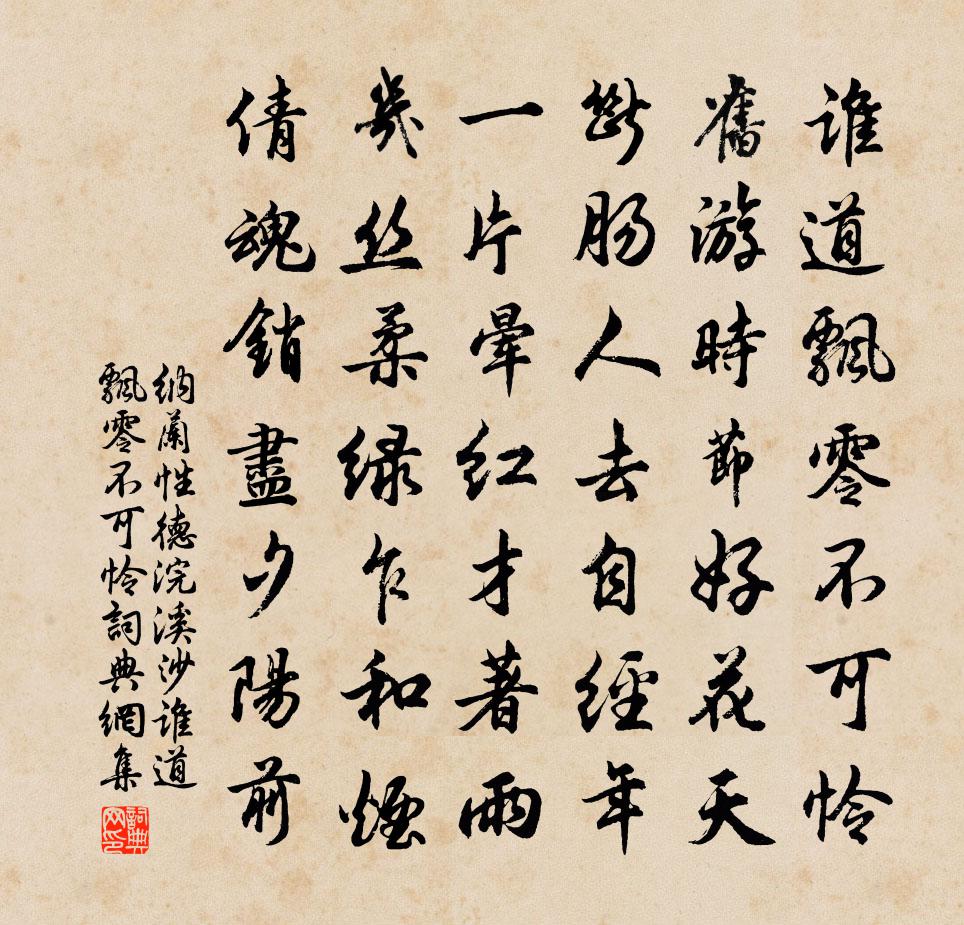 誰道飄零不可憐
舊游時節好花天
斷腸人去自經年
一片暈紅才著雨
幾丝柔绿乍和煙
倩魂銷盡夕陽前
纳蘭性德浣溪沙誰道
飄零不可憐詞典網集
詞典
网印